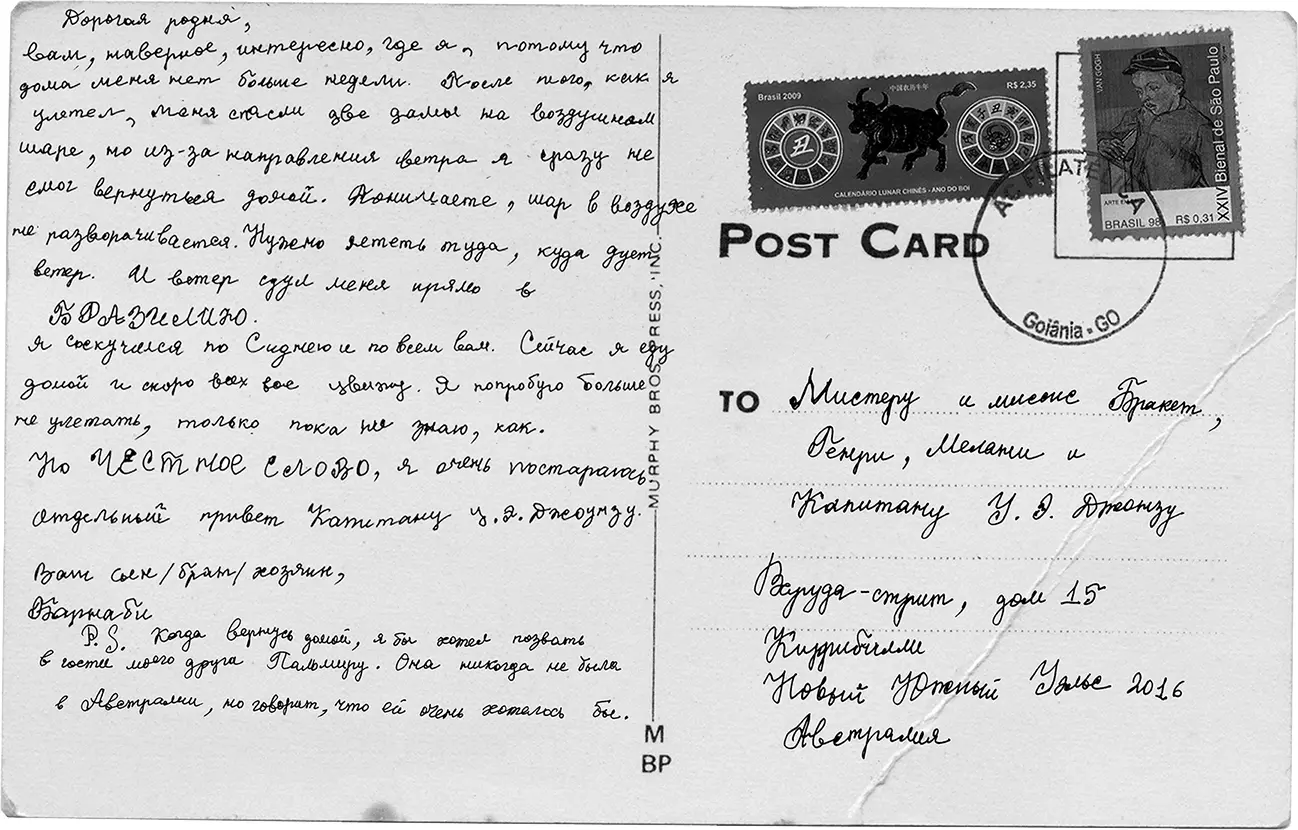 Дорогая родня,
вам, наверное, интересно, где я, потому что
дома меня нет больше недели. После того, как я
улетел, меня спасли две дамы на воздушном
шаре, но из-за направления ветра я сразу не
смог вернуться домой. Понимаете, шар в воздухе
не разворачивается. Нужно лететь туда, куда дует
ветер. И ветер сдул меня прямо в
БРАЗИЛИЮ.
Я соскучился по Сиднею и по всем вам. Сейчас я еду
домой и скоро всех вас увижу. Я попробую больше
не улетать, только пока не знаю, как.
Но ЧЕСТНОЕ СЛОВО, я очень постараюсь
отдельный привет Капитану У. Э. Джонзу.
Ваш сын/брат/хозяин,
Барнаби
P.S. Когда вернусь домой, я бы хотел позвать
в гости моего друга Пальмиру. Она никогда не была
в Австралии, но говорит, что ей очень хотелось бы.
MURPHY BROS. PRESS, INC.
M
BP
Brasil 2009
中国农历牛年
R$ 2,35
丑
CALENDÁRIO LUNAR CHINÊS - ANO DO BOI
VAN GOGH
XXIV Bienal de São Paulo
BRASIL 98 R$ 0,31
Goiânia - GO
POST CARD
TO Мистеру и миссис Бракет,
Генри, Мелани и
Капитану У. Э. Джонзу
Вуруда-стрит, дом 15
Киррибилли
Новый Южный Уэльс 2016
Австралия